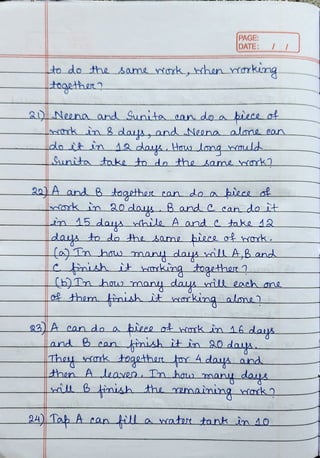 PAGE:
DATE: / /
to do the same work, when working
together?
21) Neena and Sunita can do a piece of
work in 8 days, and Neena alone can
do it in 12 days. How long would
Sunita take to do the same work?
22) A and B together can do a piece of
work in 20 days. B and C can do it
in 15 days while A and C take 12
days to do the same piece of work.
(a) In how many days will A, B and
C finish it working together?
(b) In how many days will each one
of them finish it working alone?
23) A can do a piece of work in 16 days
and B can finish it in 20 days.
They work together for 4 days and
then A leaves. In how many days
will B finish the remaining work?
24) Tap A can fill a water tank in 10